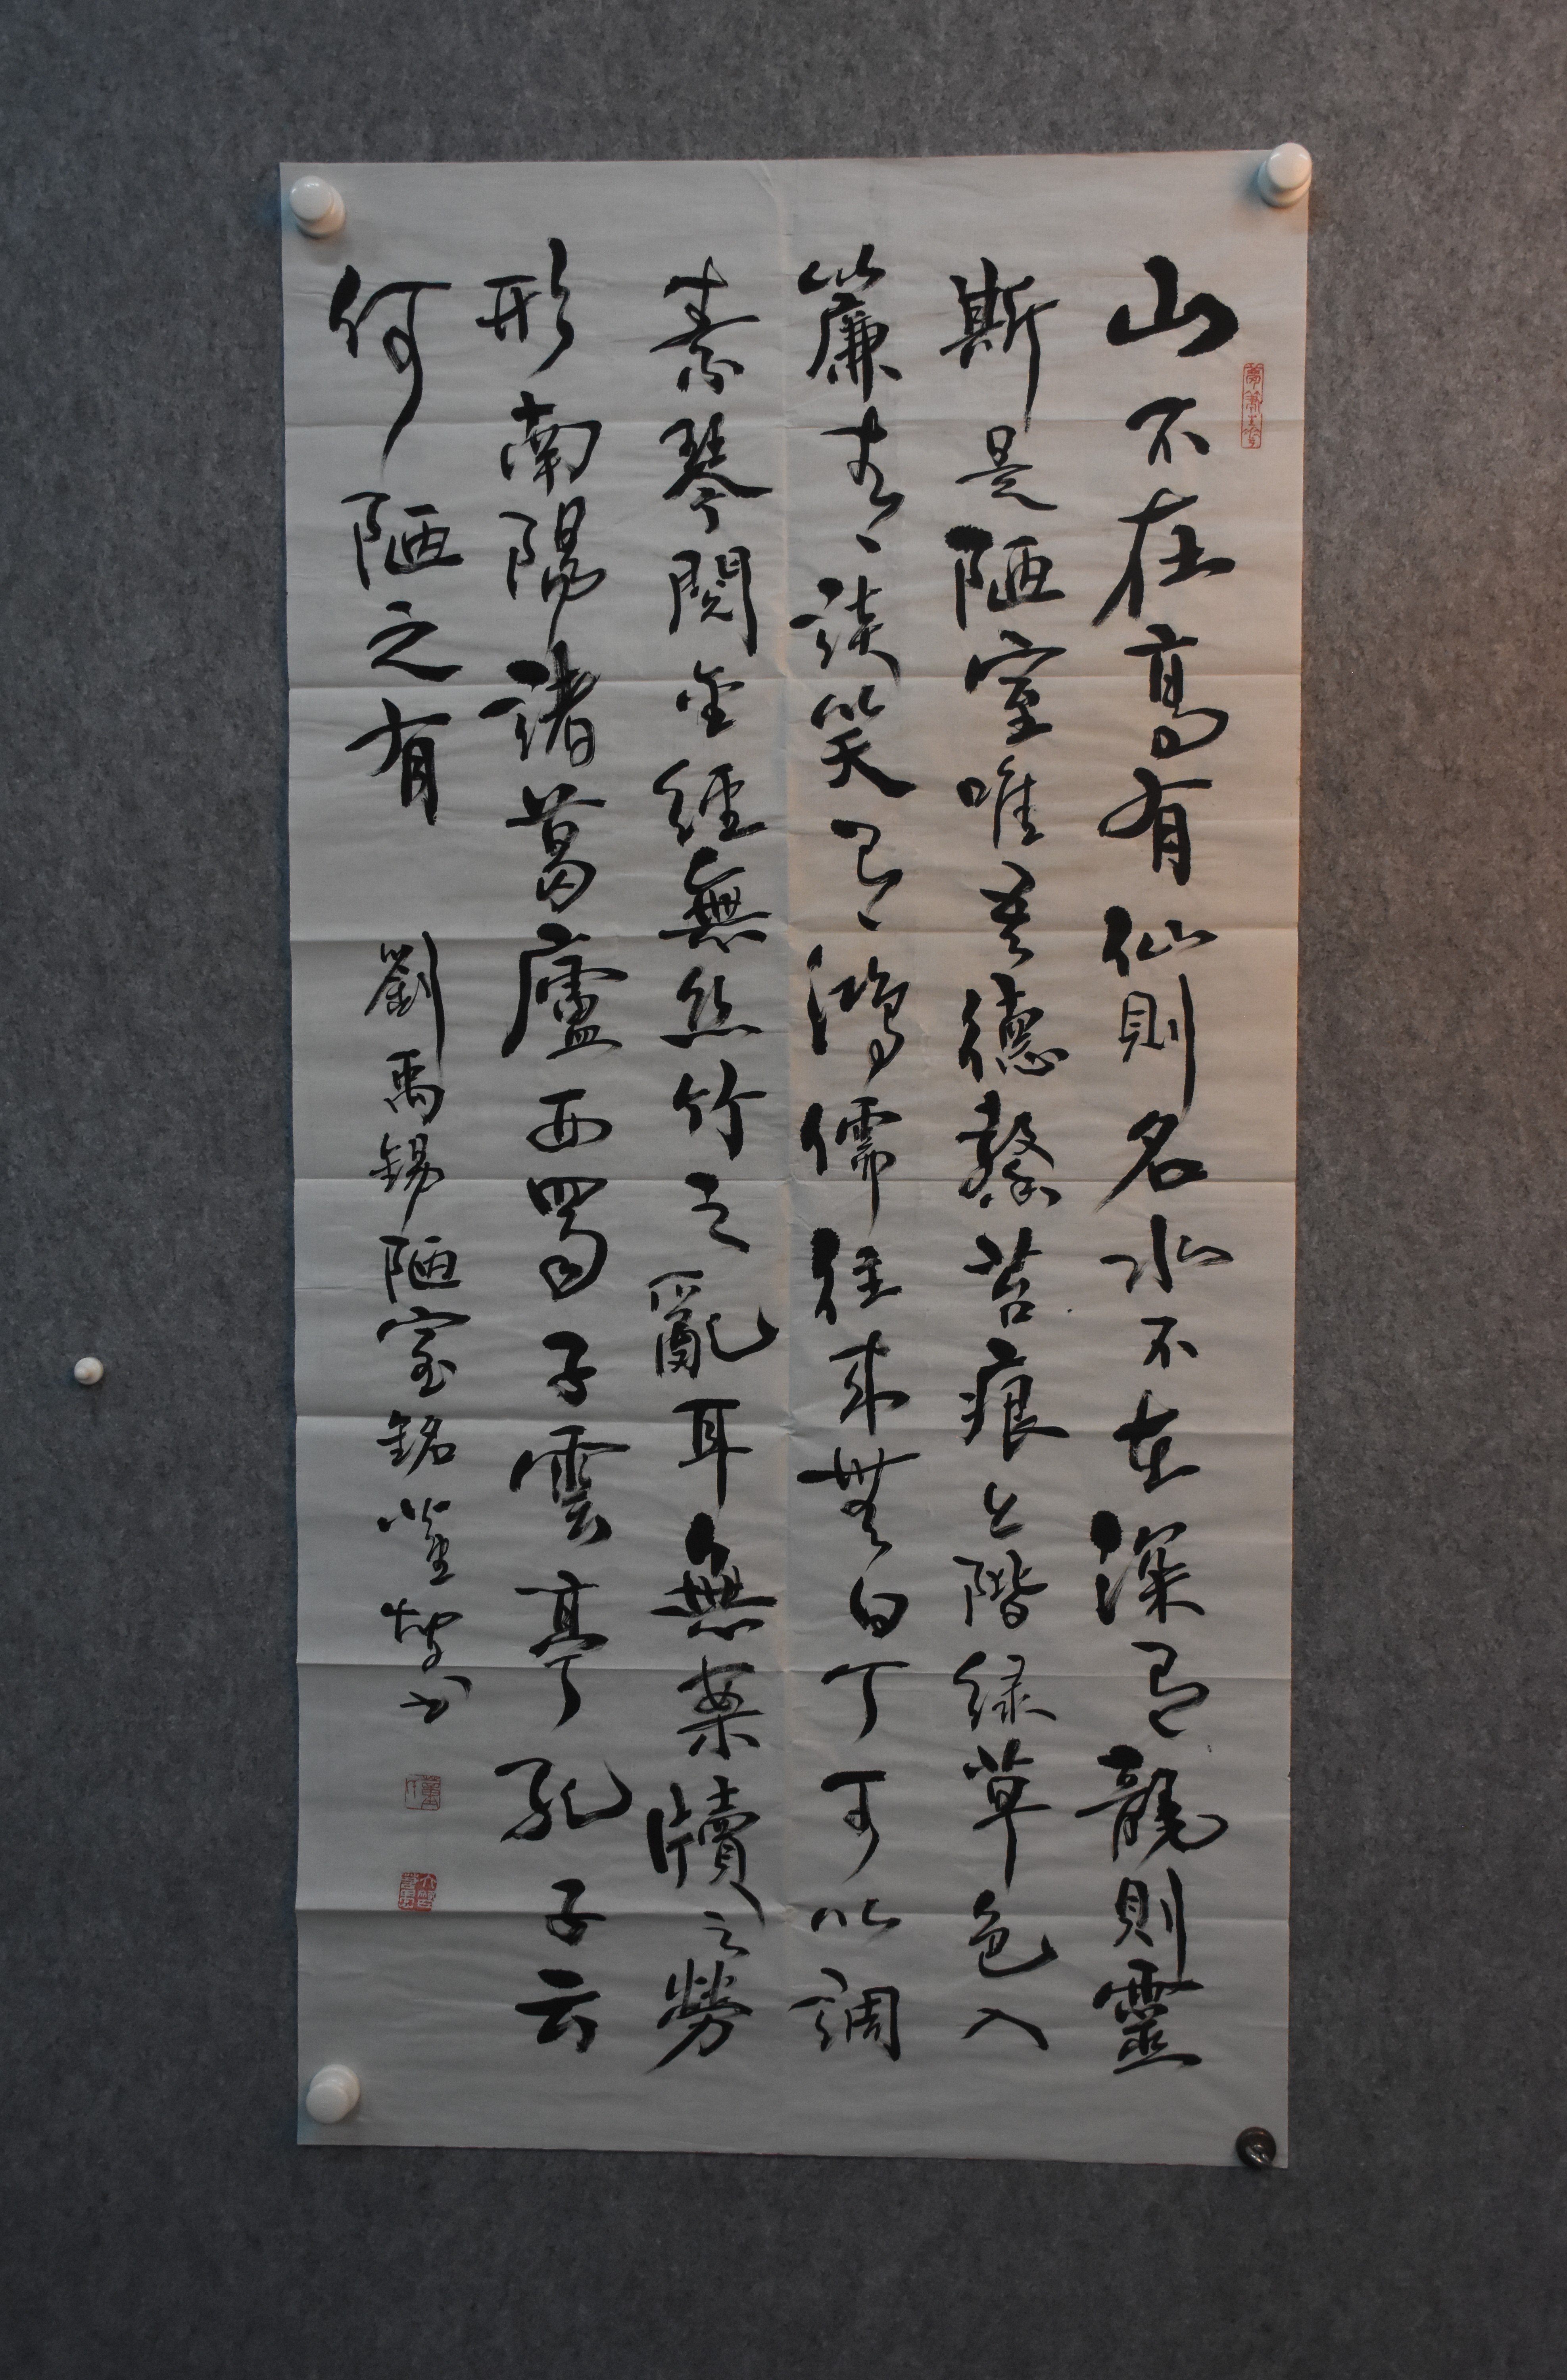 山不在高有仙則名水不在深有龍則靈
斯是陋室唯吾德馨苔痕上階緑草色入
簾青談笑有鴻儒往来無白丁可以調
素琴閱金經無絲竹之亂耳無案牘之勞
形南陽諸葛廬西蜀子雲亭孔子云
何陋之有
劉禹錫陋室銘